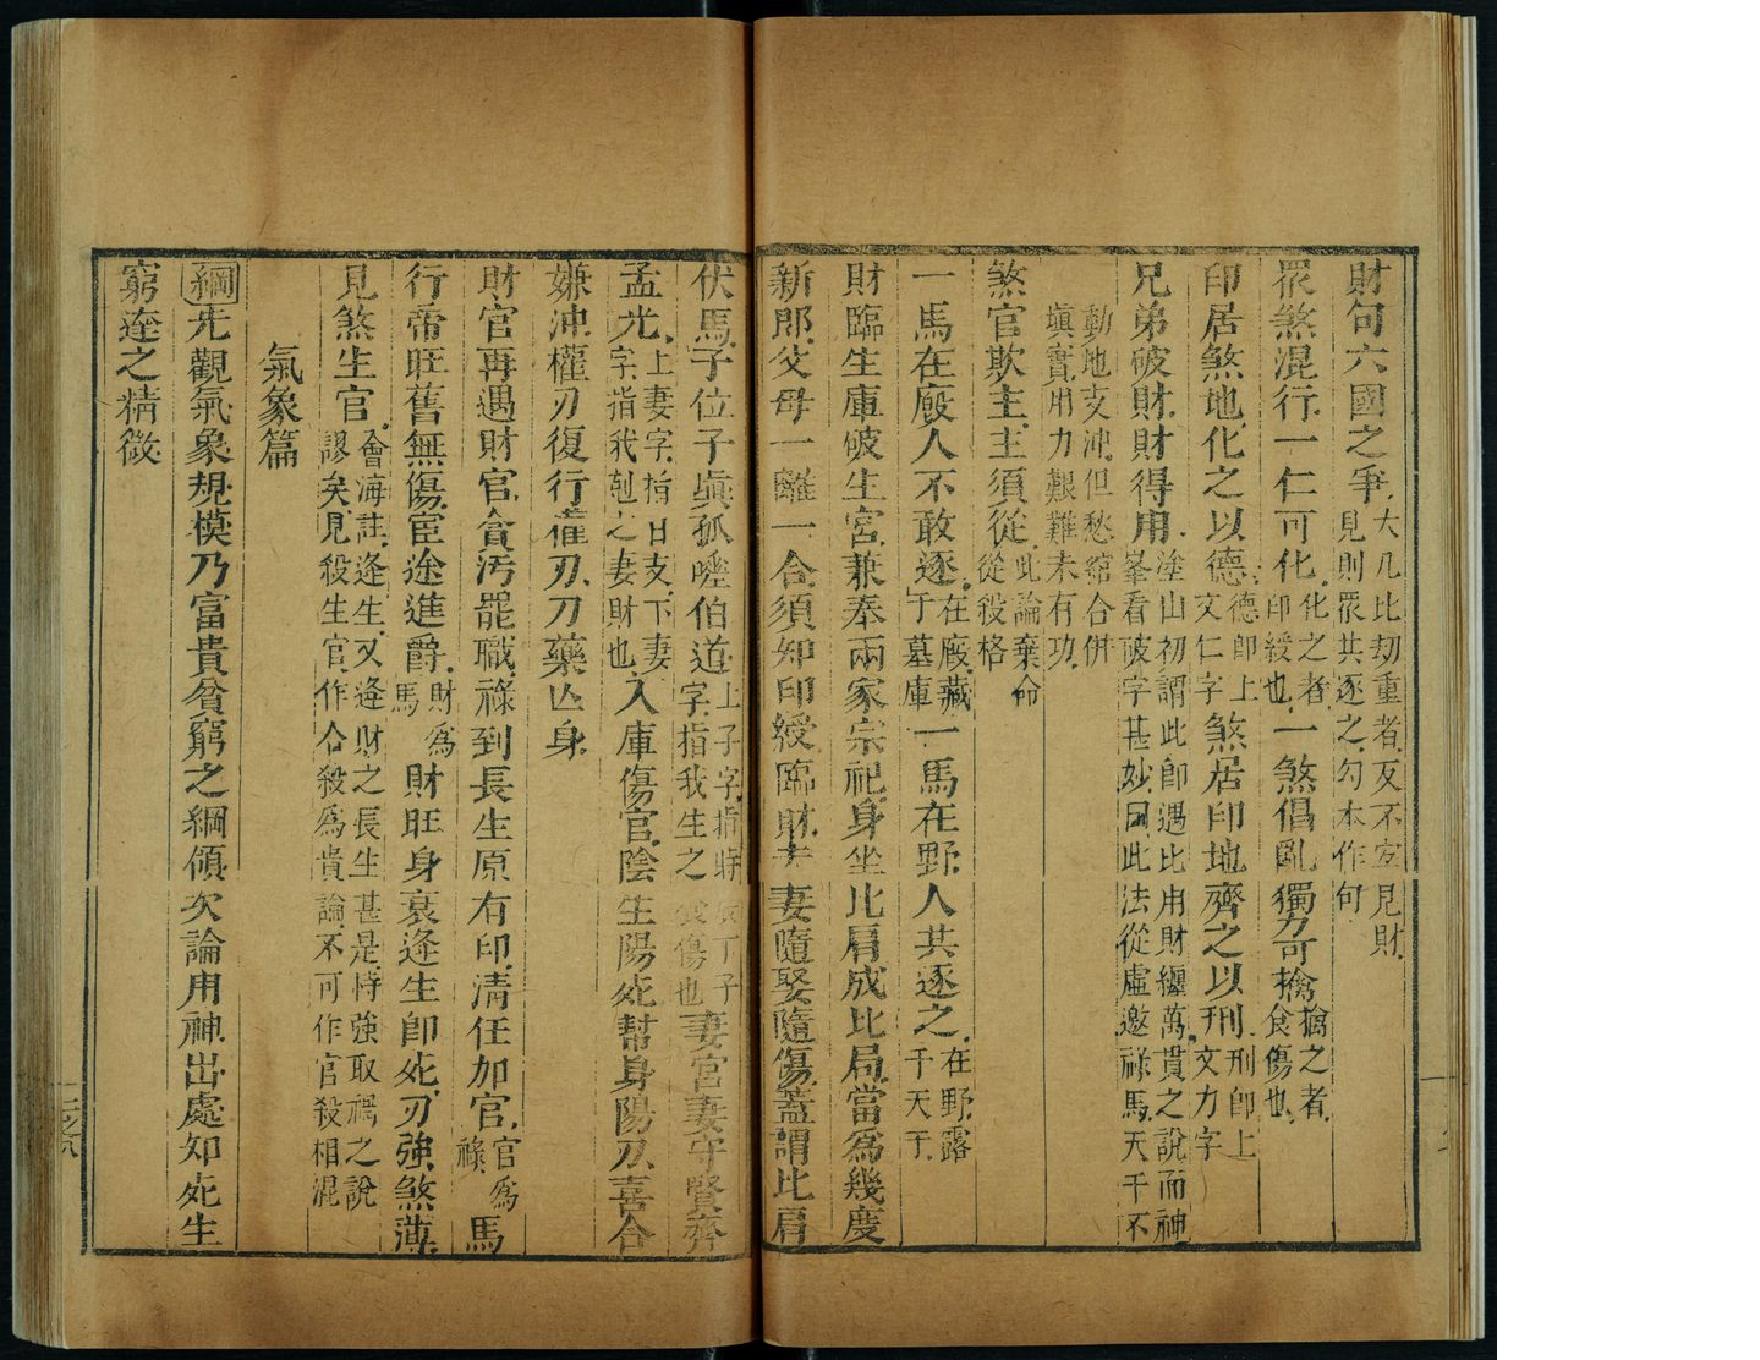 財句六國之爭大凡比刼重者反不宜見財見則眾共逐之勾本作句
眾煞混行一仁可化化之者印綬也一煞倡亂獨力可擒擒之者食傷也
印居煞地化之以德德即上文仁字煞居印地齊之以刑刑即上文力字
兄弟破財財得用塗山初謂此即遇比用財纏萬貫之說而神峯看破字甚妙因此法從虛邀祿馬天干不
動地支沖但愁綰合併填實用力艱難未有功
煞官欺主主須從此論棄命從殺格
一馬在廄人不敢逐在廄藏于墓庫一馬在野人共逐之在野露于天干
財臨生庫破生宮兼奉兩家宗祀身坐比肩成比局當為幾度
新郎父母一離一合須知印綬臨財夫妻隨娶隨傷蓋謂比肩
伏馬子位子填孤嗟伯道上子字指時子字指我生之傷也妻宮妻守賢齊
孟光上妻字指日支下妻字指我剋之妻財也入庫傷官陰生陽死幫身陽刃喜合
嫌沖權刃復行權刃刀藥亡身
財官再遇財官貪污罷職祿到長生原有印清任加官官為祿馬
行帝旺舊無傷宦途進爵財為馬財旺身衰逢生即死刃強煞薄
見煞生官會海註逢生又逢財之長生甚是恃強取禍之說謬矣見殺生官作合殺為貴論不可作官殺相混
氣象篇
綱先觀氣象規模乃富貴貧窮之綱領次論用神出處知死生
窮達之精微